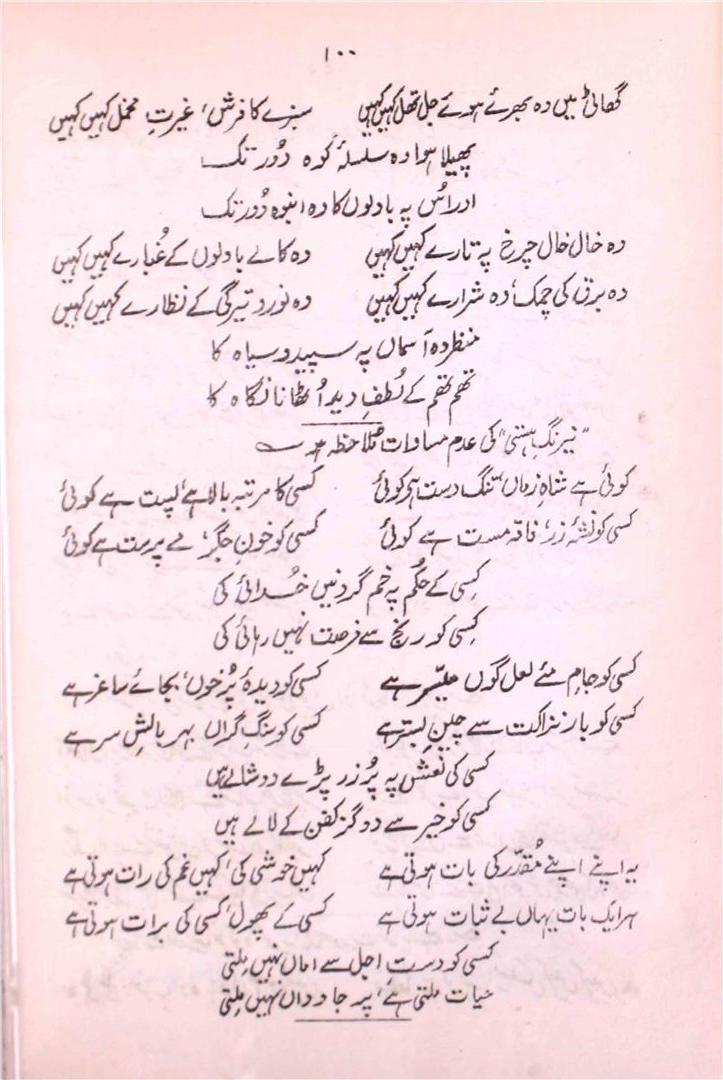 ۱۰۰
گھاٹی میں وہ بھرے ہوئے جل تھل کہیں کہیں سبزے کا فرش، غیرتِ مخمل کہیں کہیں
پھیلا ہوا وہ سلسلۂ کوہ دُور تک
اور اُس پہ بادلوں کا وہ انبوہ دُور تک
وہ خال خال چرخ پہ تارے کہیں کہیں وہ کالے بادلوں کے غُبارے کہیں کہیں
وہ برق کی چمک، وہ شرارے کہیں کہیں وہ نور و تیرگی کے نظارے کہیں کہیں
منظر وہ آسماں پہ سپید و سیاہ کا
تھم تھم کے لُطفِ دید اُٹھانا نگاہ کا
"نیرنگِ ہستی" کی عدم مساوات ملاحظہ ہو
کوئی ہے شاہِ زماں، تنگ دست ہی کوئی کسی کا مرتبہ بالا ہے، پست ہے کوئی
کسی کو نشۂ زر، فاقہ مست ہے کوئی کسی کو خونِ جگر، مے پرست ہے کوئی
کِسی کے حکُم پہ خم گردنیں خُدائی کی
کِسی کو رنج سے فرصت نہیں رہائی کی
کسی کو جامِ مئے لعل گوں میسّر ہے کسی کو دیدۂ پُر خوں، بجائے ساغر ہے
کسی کو بارِ نزاکت سے چینِ بستر ہے کسی کو سنگِ گراں بہرِ بالشِ سر ہے
کسی کی نعش پہ پُر زر پڑے دوشالے ہیں
کسی کو خیر سے دو گز کفن کے لالے ہیں
یہ اپنے اپنے مُقدّر کی بات ہوتی ہے کہیں خوشی کی، کہیں غم کی رات ہوتی ہے
ہر ایک بات یہاں بے ثبات ہوتی ہے کسی کے پھول، کسی کی برات ہوتی ہے
کسی کو دستِ اجل سے اماں نہیں مِلتی
حیات ملتی ہے، پر جاوداں نہیں مِلتی